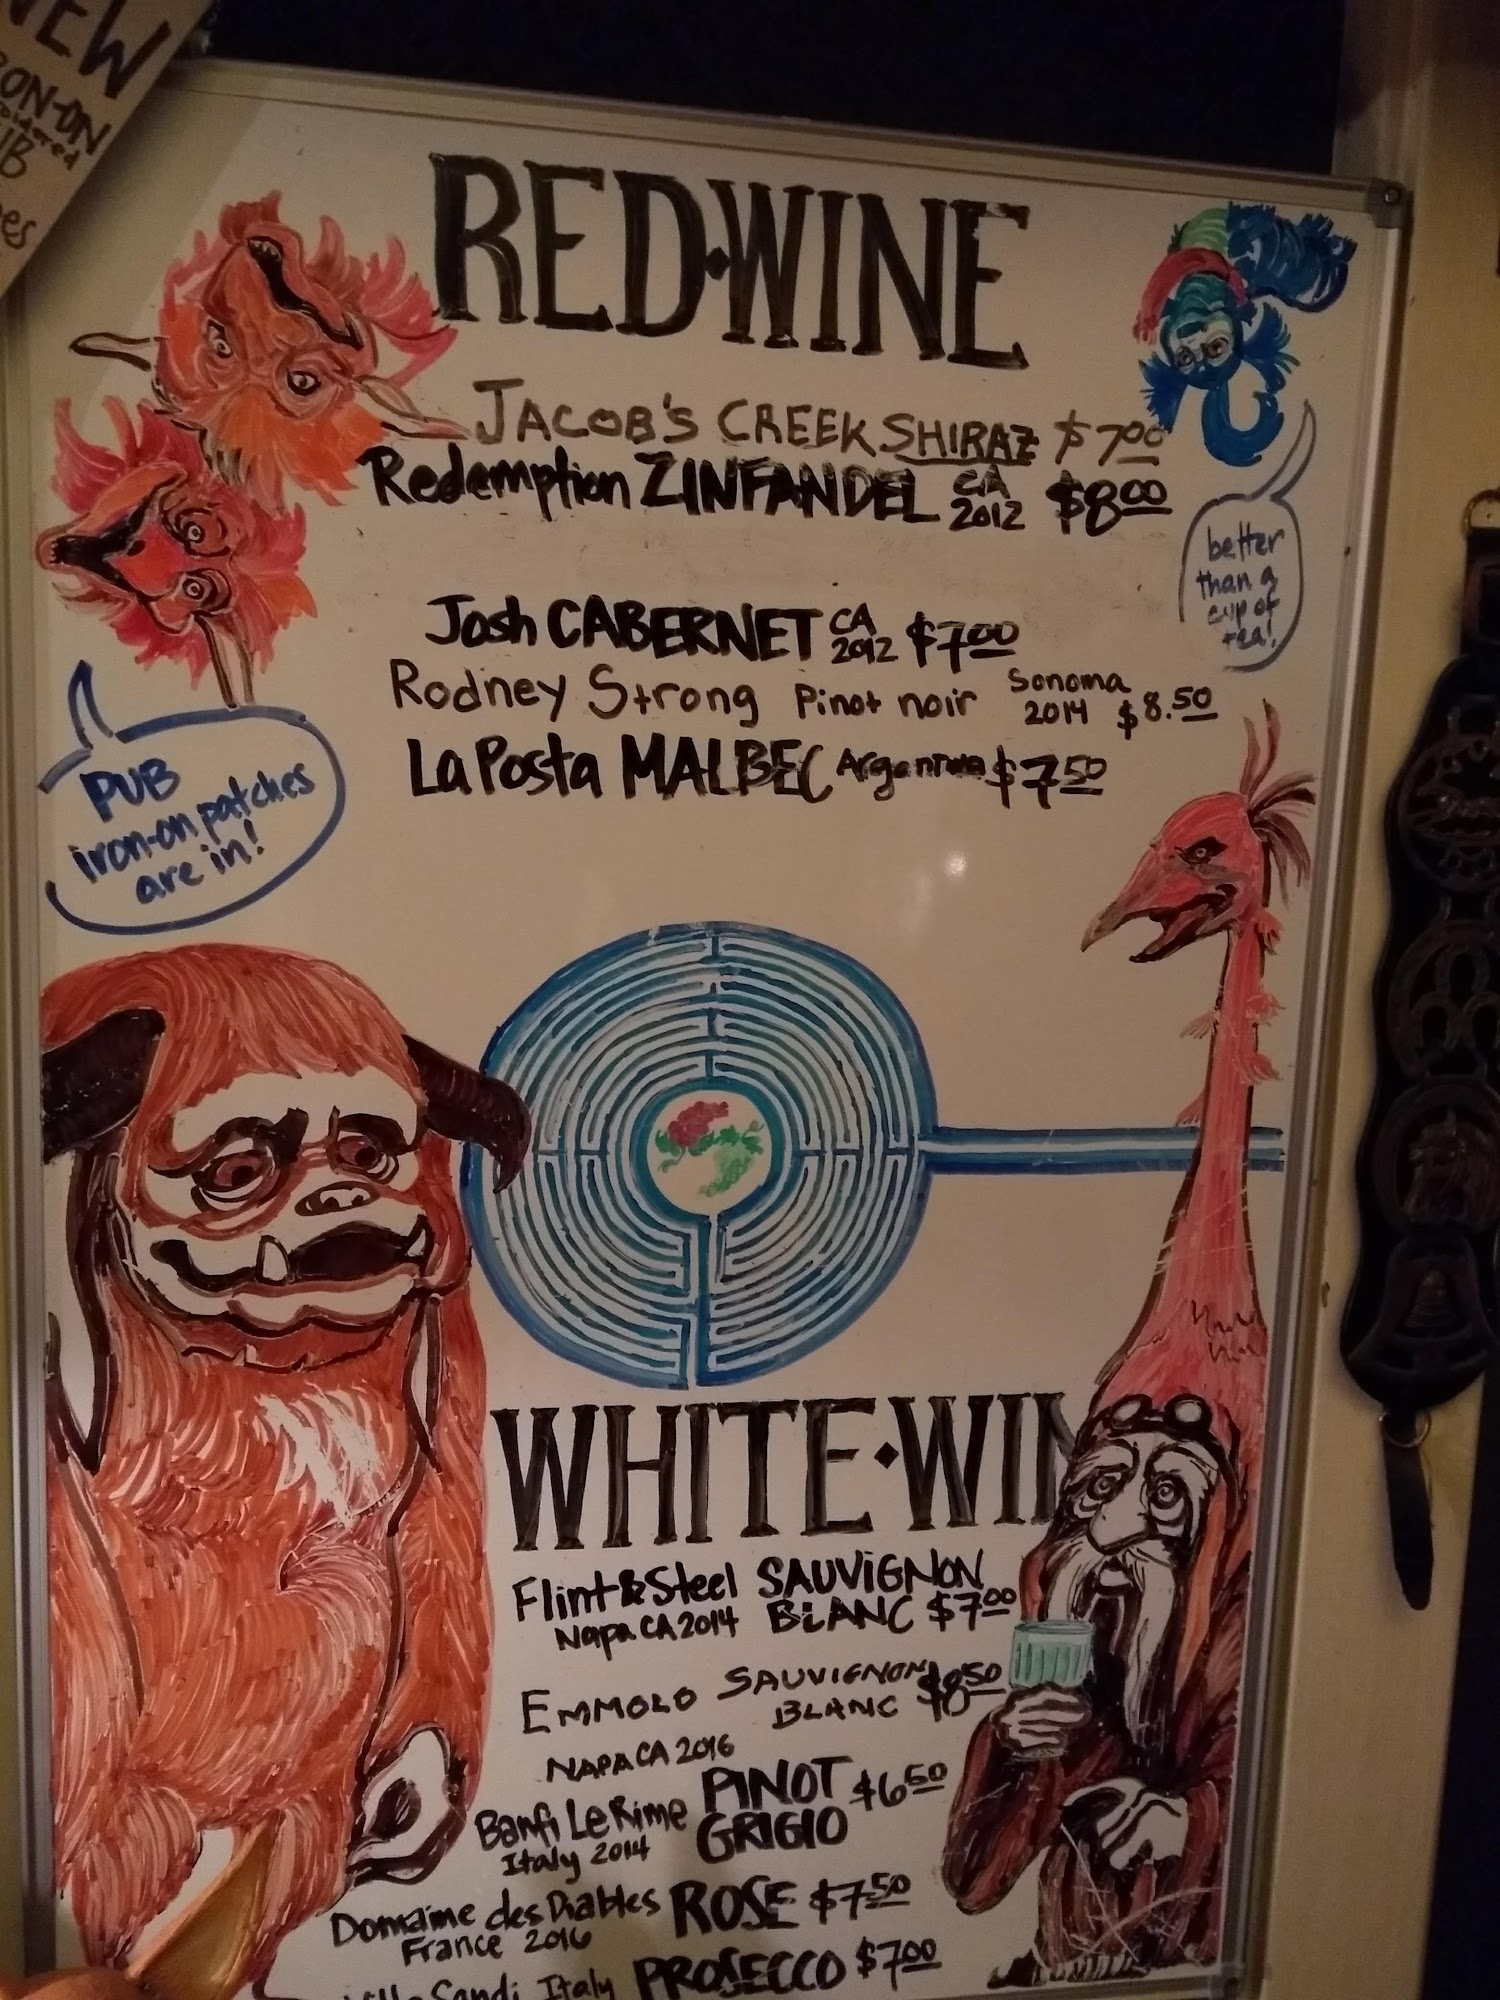 NEW
RED·WINE
JACOB'S CREEK SHIRAZ $7.00
Redemption ZINFANDEL CA 2012 $8.00
better
than a
cup of
tea!
Josh CABERNET CA 2012 $7.00
Rodney Strong Pinot noir Sonoma 2014 $8.50
La Posta MALBEC Argentina $7.50
PUB
iron-on patches
are in!
WHITE·WIN
Flint & Steel SAUVIGNON
Napa CA 2014 BLANC $7.00
EMMOLO SAUVIGNON
BLANC $8.50
NAPA CA 2016
Banfi Le Rime PINOT GRIGIO $6.50
Italy 2014
Domaine des Diables ROSE $7.50
France 2016
Sandi Italy PROSECCO $7.00